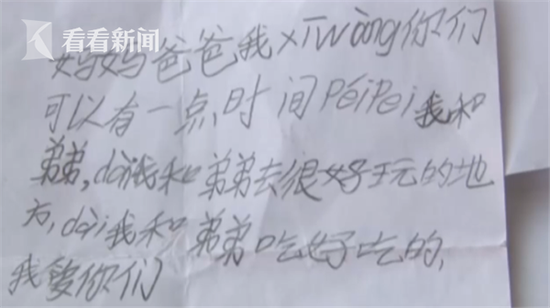 看看新闻
妈妈爸爸我xīwàng你们
可以有一点,时间PéiPei我和
弟弟,dài我和弟弟去很好玩的地
方,dài我和弟弟吃好吃的,
我爱你们